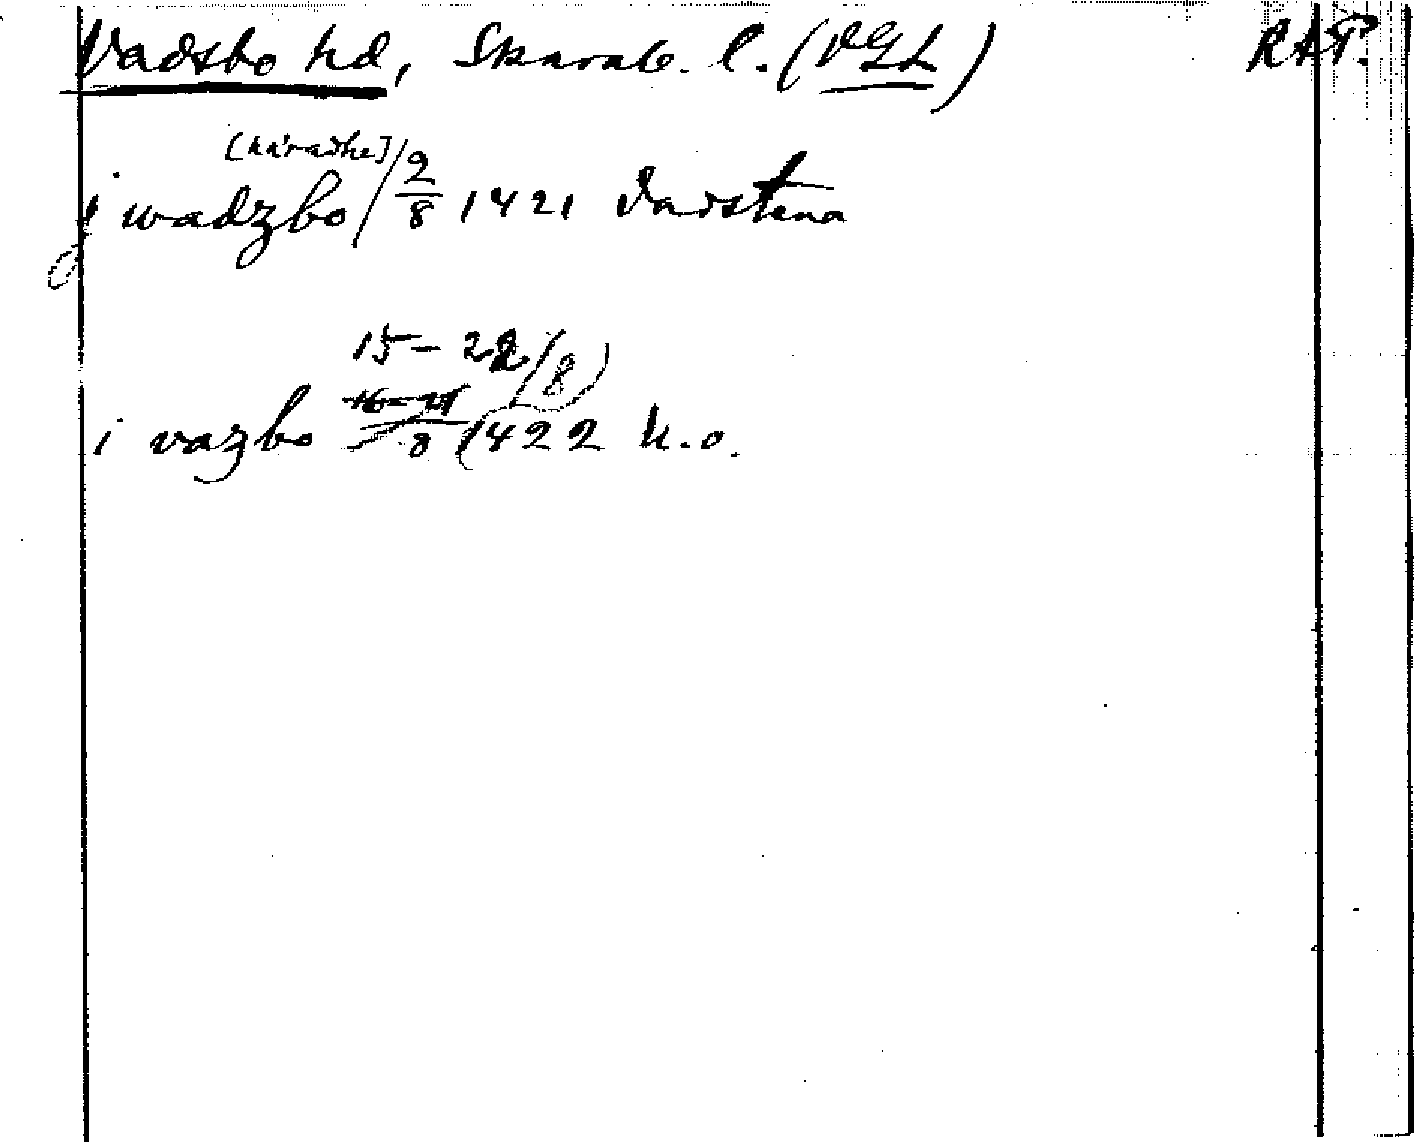 Vadsbo hd, Skarab. l. (VGL) RAP.
[häradhe]
j wadzbo / 2/8 1421 Vadstena
15 – 22/8)
i vazbo 16–21/8 (1422 h.o.